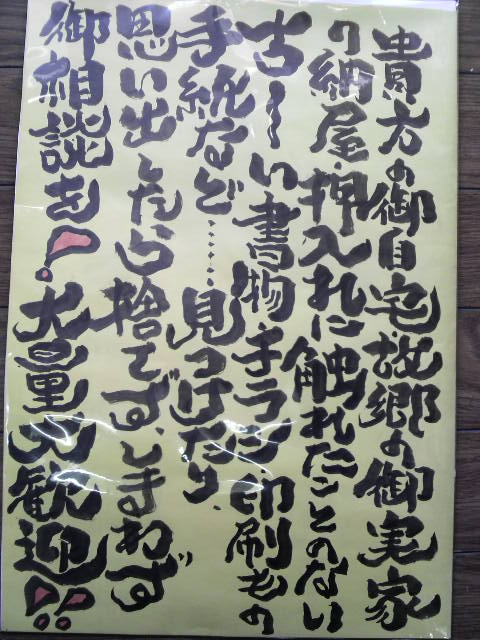 貴方の御自宅故郷の御実家
の納屋・押入れに触れたことのない
古〜い書物・チラシ印刷もの
手紙など……見つけたり、
思い出したら捨てず、しまわず
御相談を!大量大歓迎!!